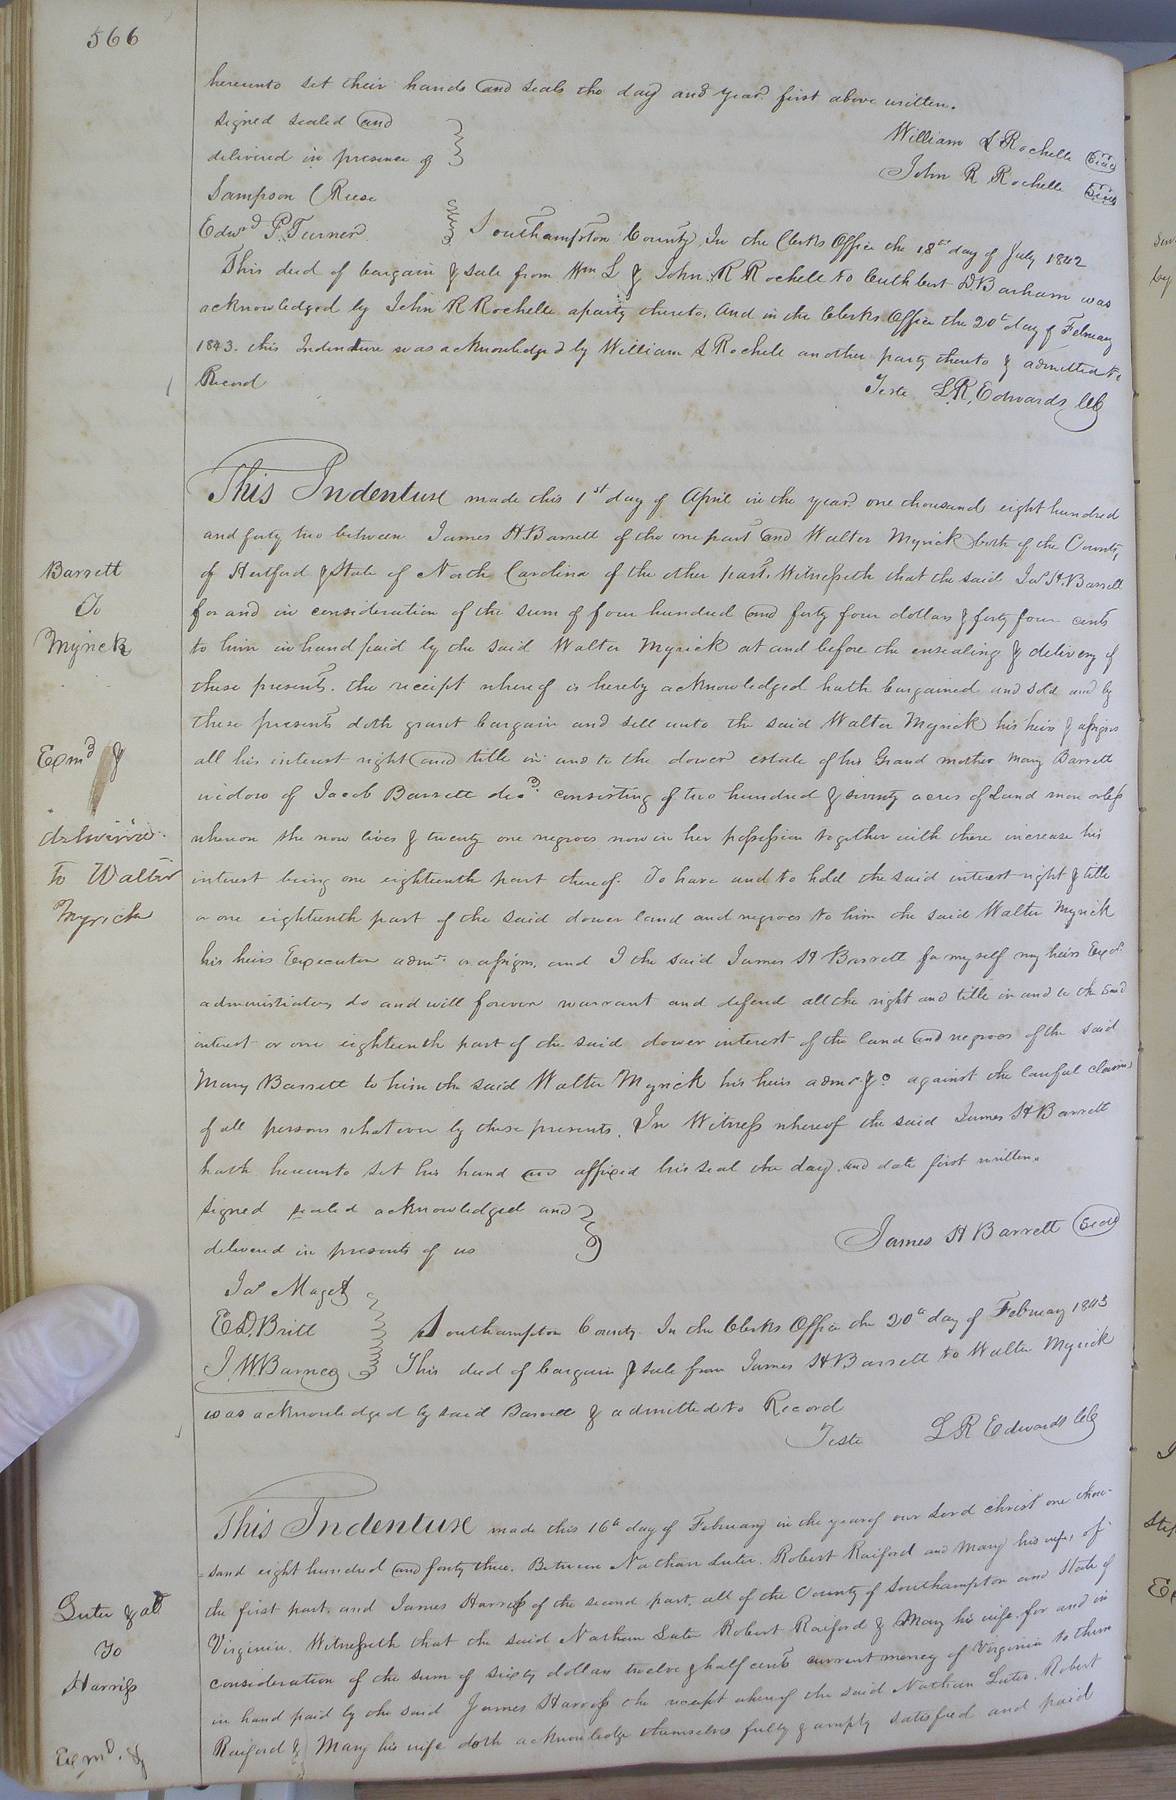 566
hereunto set their hands and seals the day and year first above written.
signed sealed and
delivered in presence of
William L Rochelle Seal
John R Rochelle Seal
Sampson C Reese
Edwd P. Turner
Southampton County, In the Clerks Office the 18th day of July 1842
This deed of bargain & sale from Wm L & John R Rochelle to Cuthbert D. Barham was
acknowledged by John R Rochelle a party thereto. And in the Clerks Office the 20th day of February
1843. this Indenture was acknowledged by William L Rochelle another party thereto & admitted to
Record
Teste L.R. Edwards CC
Barrett
To
Myrick
Exmd &
delivered
to Walter
Myrick
This Indenture made this 1st day of April in the year one thousand eight hundred
and forty two between James H Barrett of the one part and Walter Myrick both of the County
of Hertford & State of North Carolina of the other part. Witnesseth that the said Jas H. Barrett
for and in consideration of the sum of four hundred and forty four dollars & forty four cents
to him in hand paid by the said Walter Myrick at and before the ensealing & delivery of
these presents. the receipt whereof is hereby acknowledged hath bargained and sold and by
these presents doth grant bargain and sell unto the said Walter Myrick his heirs & assigns
all his interest right and title in and to the dower estate of his Grand mother Mary Barrett
widow of Jacob Barrett decd. consisting of two hundred & seventy acres of Land more or less
whereon she now lives & twenty one negroes now in her possession together with there increase his
interest being one eighteenth part thereof. To have and to hold the said interest right & title
or one eighteenth part of the said dower land and negroes to him the said Walter Myrick
his heirs Executor admr. or assigns, and I the said James H Barrett for myself my heirs Exor.
administrators do and will forever warrant and defend all the right and title in and to the said
interest or one eighteenth part of the said dower interest of the land and negroes of the said
Mary Barrett to him the said Walter Myrick his heirs admr &c against the lawful claims
of all persons whatever by these presents. In Witness whereof the said James H Barrett
hath hereunto set his hand and affixed his seal the day and date first written.
signed sealed acknowledged and
delivered in presents of us
James H Barrett Seal
Jas Maget
E.D. Britt
J.W. Barnes
Southampton County. In the Clerks Office the 20th day of February 1843
This deed of bargain & sale from James H Barrett to Walter Myrick
was acknowledged by said Barrett & admitted to Record
Teste L R Edwards CC
Luter & als
To
Harriss
Exmd. &
This Indenture made this 16th day of February in the year of our Lord christ one thou-
=sand eight hundred and forty three. Between Nathan Luter. Robert Raiford and Mary his wife, of
the first part. and James Harriss of the second part. all of the County of Southampton and State of
Virginia. Witnesseth that the said Nathan Luter Robert Raiford & Mary his wife for and in
consideration of the sum of sixty dollars twelve & half cents current money of Virginia to them
in hand paid by the said James Harriss the receipt whereof the said Nathan Luter. Robert
Raiford & Mary his wife doth acknowledge themselves fully & amply satisfied and paid